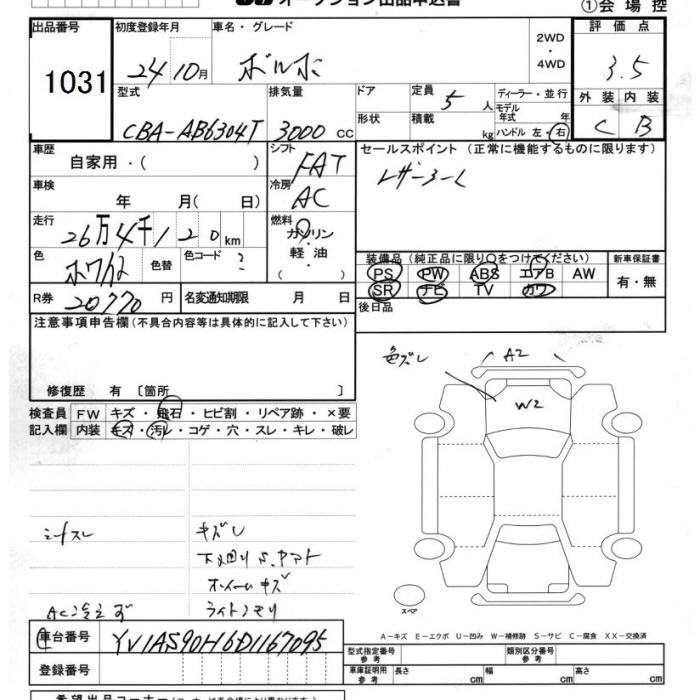 オークション出品申込書
①会場控
出品番号
1031
初度登録年月
24年10月
車名・グレード
ボルボ
2WD
・
4WD
評価点
3.5
外装 内装
C B
型式
CBA-AB6304T
排気量
3000 cc
ドア
形状
定員
5人
積載
kg
ディーラー・並行
モデル年式 年
ハンドル 左・右
車歴
自家用・( )
シフト
FAT
セールスポイント (正常に機能するものに限ります)
レザーシート
車検
年 月( 日)
冷房
AC
走行
26万4千120km
燃料
ガソリン
・
軽油
( )
色
ホワイト
色替
色コード
R券
20770円
名変通知期限 月 日
装備品(純正品に限り○をつけてください)
PS PW ABS エアB AW
SR ナビ TV カワ
新車保証書
有・無
後日品
注意事項申告欄(不具合内容等は具体的に記入して下さい)
修復歴 有〔箇所 〕
検査員 FW キズ・飛石・ヒビ割・リペア跡・×要
記入欄 内装 キズ・汚レ・コゲ・穴・スレ・キレ・破レ
色ズレ
A2
W2
シートスレ
キズレ
下廻りS.ヤマト
ホイールキズ
AC冷えず
ライトクモリ
スペア
A-キズ E-エクボ U-凹み W-補修跡 S-サビ C-腐食 XX-交換済
車台番号
YV1AS90H6D1167095
登録番号
型式指定番号
参考
類別区分番号
参考
車庫証明用
参考
長さ cm
幅 cm
高さ cm
希望出品コーナー